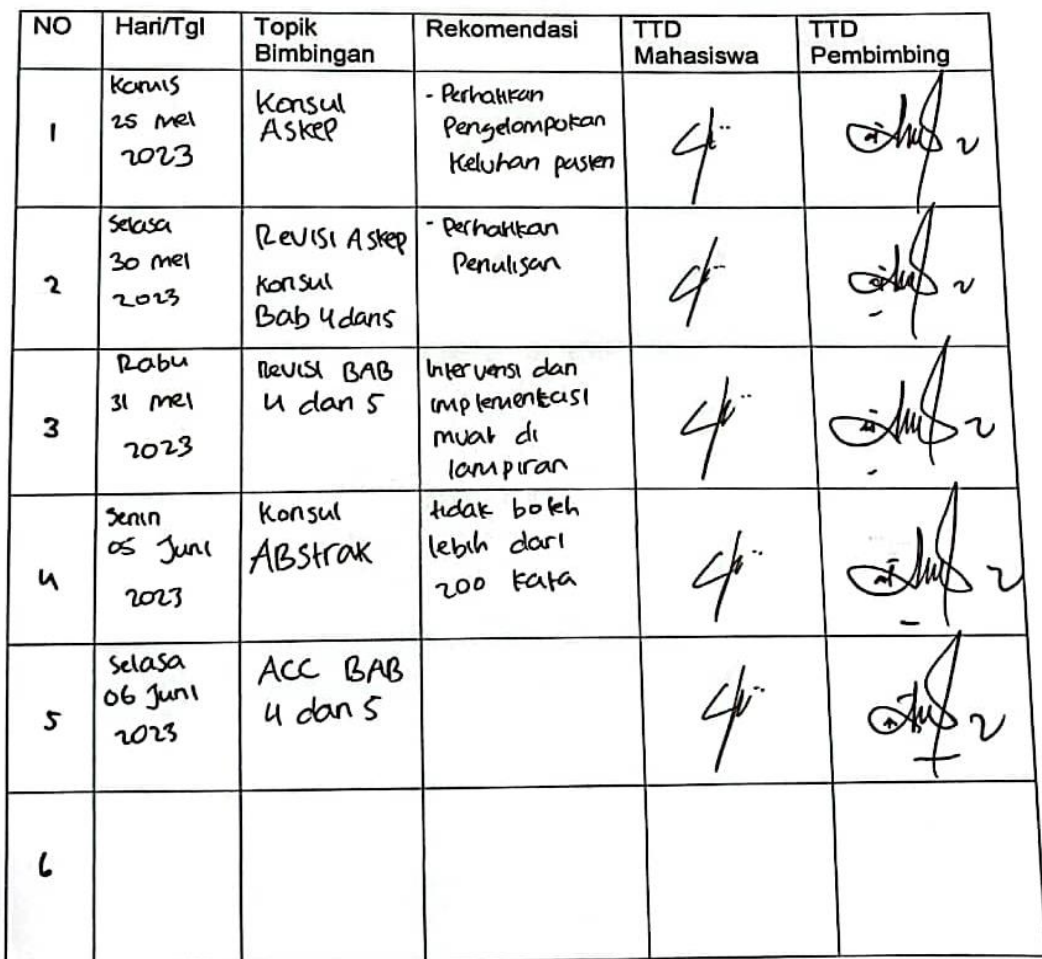 NO Hari/Tgl Topik Bimbingan Rekomendasi TTD Mahasiswa TTD Pembimbing
1
Kamis
25 Mei
2023
Konsul
Askep
- Perhatikan
Pengelompokan
Keluhan pasien
2
Selasa
30 mei
2023
Revisi Askep
Konsul
Bab 4 dan 5
- Perhatikan
Penulisan
3
Rabu
31 mei
2023
Revisi BAB
4 dan 5
Intervensi dan
implementasi
muat di
lampiran
4
Senin
05 Juni
2023
Konsul
ABstrak
tidak boleh
lebih dari
200 kata
5
Selasa
06 Juni
2023
ACC BAB
4 dan 5
6